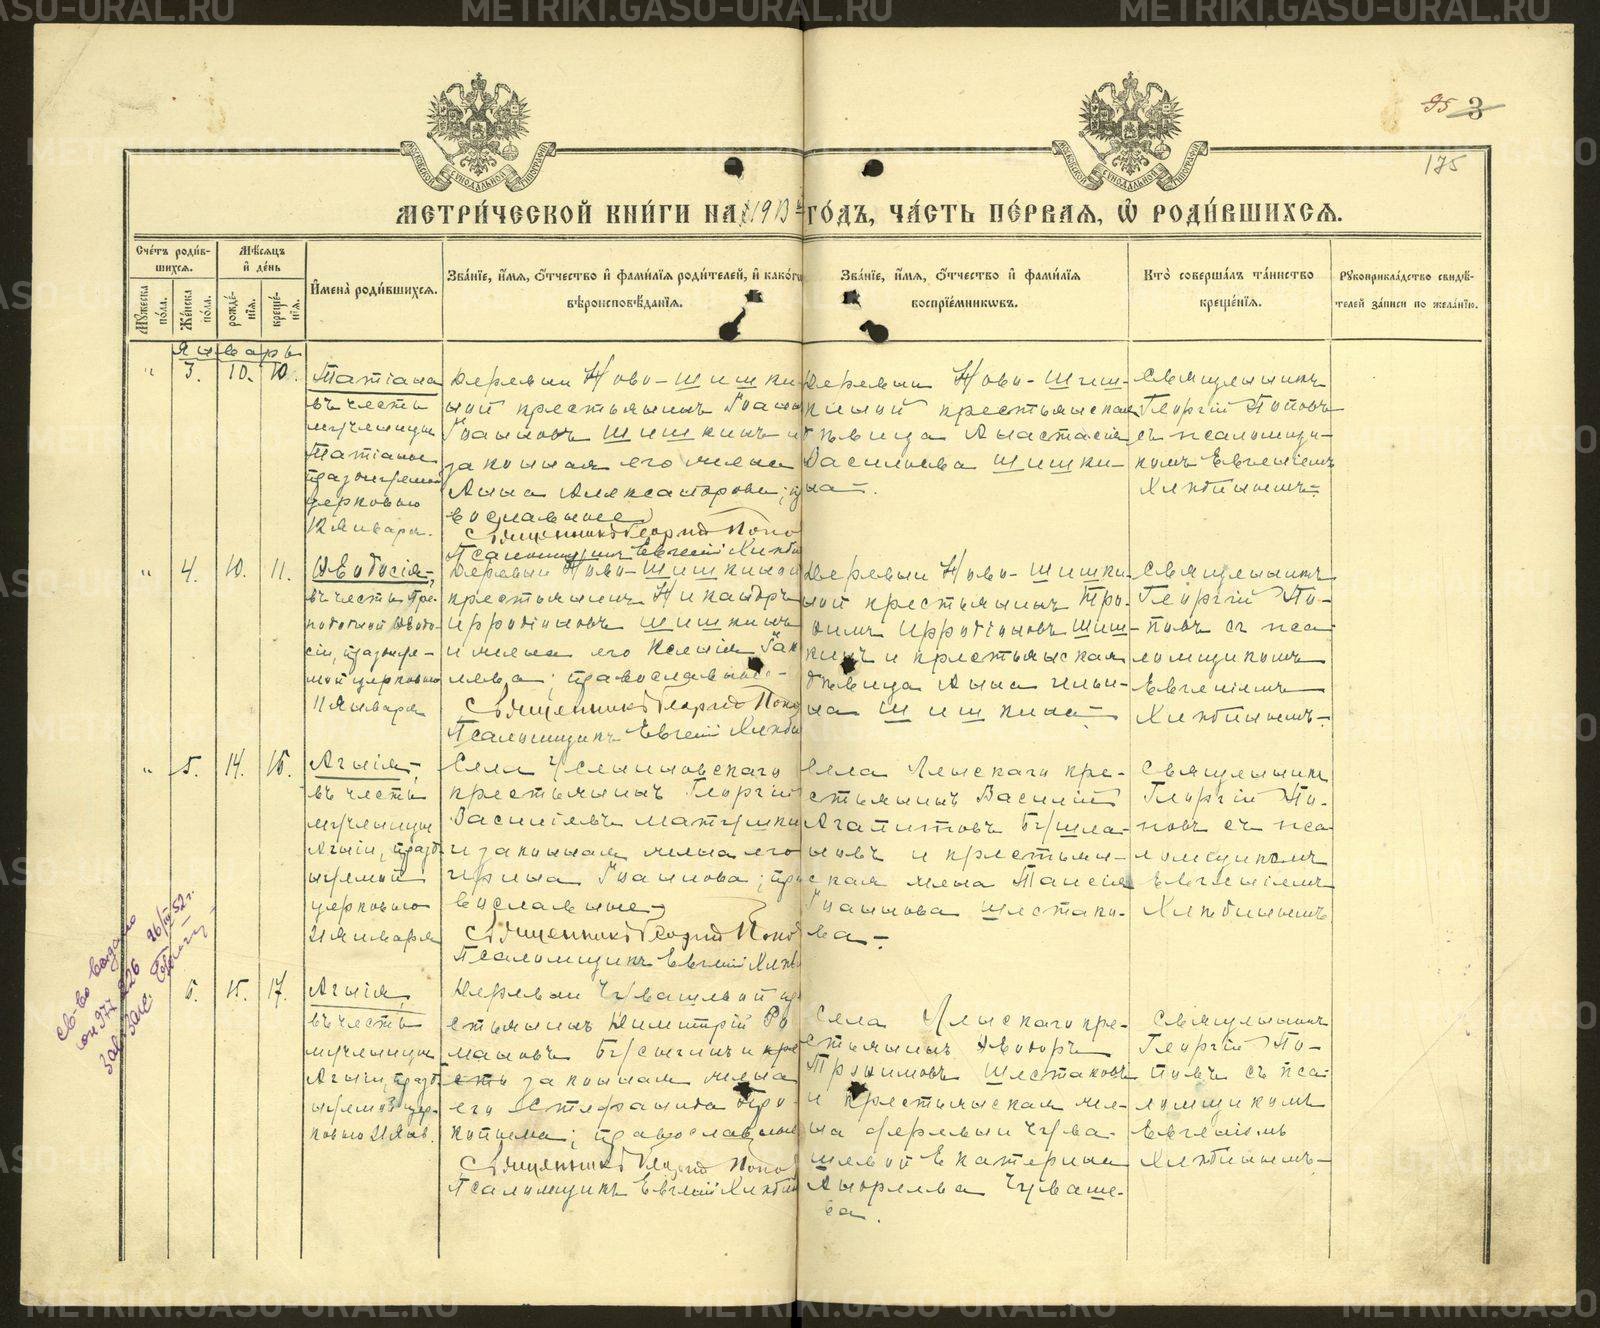 METRIKI.GASO-URAL.RU
95 3
175
МОСКОВСКОЙ СѴНОДАЛЬНОЙ ТИПОГРАФІИ
МОСКОВСКОЙ СѴНОДАЛЬНОЙ ТИПОГРАФІИ
МЕТРИ́ЧЕСКОЙ КНИ́ГИ НА 1913 ГО́ДЪ, ЧА́СТЬ ПЕ́РВАЯ, Ѡ҆ РОДИ́ВШИХСЯ.
Сче́тъ роди́в-
шихся.
Мꙋ́жеска по́ла.
Же́нска по́ла.
Мѣ́сяцъ
и҆ де́нь
рожде́-
нїѧ.
креще́-
нїѧ.
И҆мена̀ роди́вшихся.
Зва́нїе, и҆́мя, ѻ҆́тчество и҆ фами́лїя роди́телей, и҆ како́гѡ
вѣроисповѣ́данїя.
Зва́нїе, и҆́мя, ѻ҆́тчество и҆ фами́лїя
воспрїе́мникѡвъ.
Кто̀ соверша́лъ та́инство
креще́нїя.
Рꙋкоприкла́дство свидѣ́-
телей за́писи по жела́нїю.
Январь
" 3. 10. 10.
Татіана
въ честь
мученицы
Татіаны
празднуемой
церковью
12 Января.
Деревни Ново-Шишки-
ной крестьянинъ Іоаннъ
Іоанновъ Шишкинъ и
законная его жена
Анна Александрова; пра
вославные
Священникъ Георгій Попо
Псаломщикъ Евгеній Хлѣби
Деревни Ново-Шиш-
киной крестьянская
дѣвица Анастасія
Васильева Шишки-
на.
Священникъ
Георгій Поповъ
съ псаломщи-
комъ Евгеніемъ
Хлѣбинымъ.
" 4. 10. 11.
Ѳеодосія,
въ честь Пре-
подобной Ѳеодо-
сіи, праздуе-
мой церковью
11 Января
Деревни Ново-Шишкиной
крестьянинъ Никандръ
Иродіоновъ Шишкинъ
и жена его Ксенія Іак
лева; православные
Священникъ Георгій Попо
Псаломщикъ Евгеній Хлѣби
Деревни Ново-Шишки-
ной крестьянинъ Тро-
фимъ Иродіоновъ Шиш-
кинъ и крестьянская
дѣвица Анна Ильи-
на Шишкина
Священникъ
Георгій По-
повъ съ пса
ломщикомъ
Евгеніемъ
Хлѣбинымъ.
" 5. 14. 15.
Агнія,
въ честь
мученицы
Агніи, празд
нуемой
церковью
21 Января
Села
крестьянинъ Георгій
Васильевъ Матушки
и законная жена его
Ирина Іоаннова; пра
вославные
Священникъ Георгій Попо
Псаломщикъ Евгеній Хлѣб
Села Ялыскаго кре-
стьянинъ Василій
Агапитовъ
новъ и крестьян-
ская жена Таисія
Іоаннова Шестако-
ва.
Священникъ
Георгій По-
повъ съ пса
ломщикомъ
Евгеніемъ
Хлѣбинымъ
6. 15. 17.
Агнія,
въ честь
мученицы
Агніи, празд
нуемой цер-
ковью 21 Янв.
Деревни Чувашевой кре
стьянинъ Димитрій Ро
мановъ и кре
сть законная жена
его Стефанида Про-
копьева; православные
Священникъ Георгій Попо
Псаломщикъ Евгеній Хлѣбин
Села Ялыскаго кре-
стьянинъ Ѳеодоръ
Трофимовъ Шестаковъ
и крестьянская же-
на деревни Чува-
шевой Екатерина
Андреева Чуваше-
ва.
Священникъ
Георгій По-
повъ съ пса
ломщикомъ
Евгеніемъ
Хлѣбинымъ
Св-во выдано
26/IV 52 г.
Зав. ЗАГС